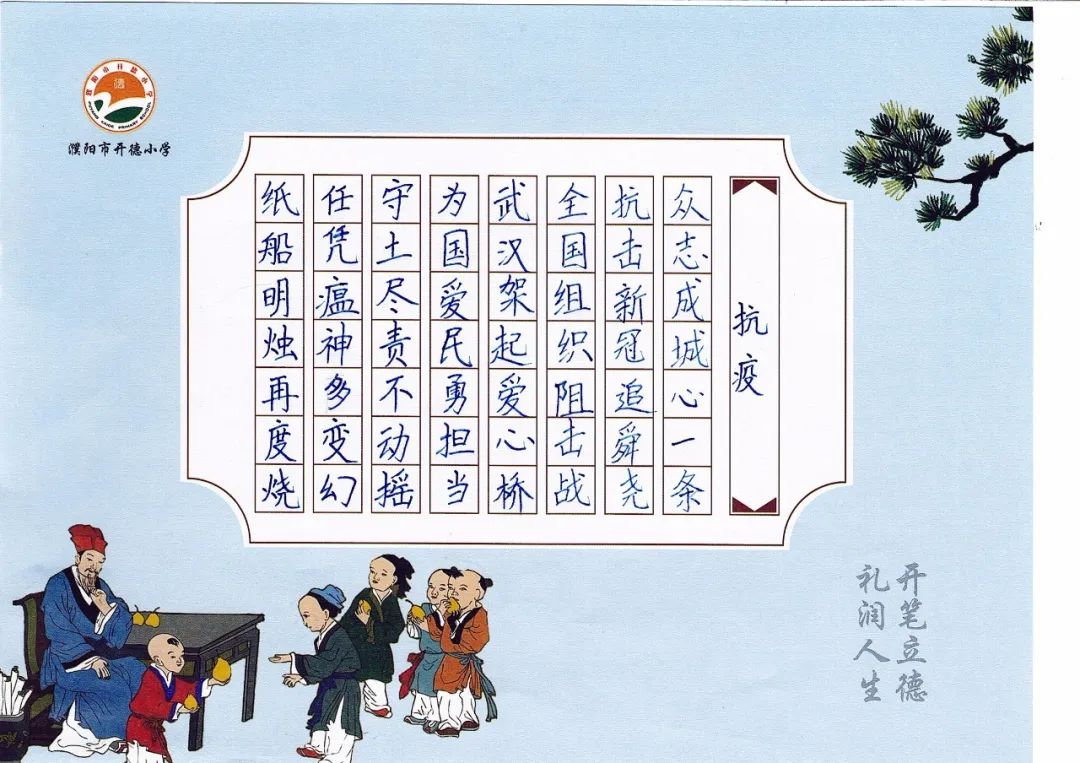 濮阳市开德小学
濮阳市开德小学
PUYANG KAIDE PRIMARY SCHOOL
抗疫
众志成城心一条
抗击新冠追舜尧
全国组织阻击战
武汉架起爱心桥
为国爱民勇担当
守土尽责不动摇
任凭瘟神多变幻
纸船明烛再度烧
开笔立德
礼润人生